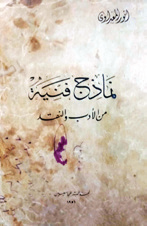 انور المعداوي
نماذج فنية
من الأدب والنقد